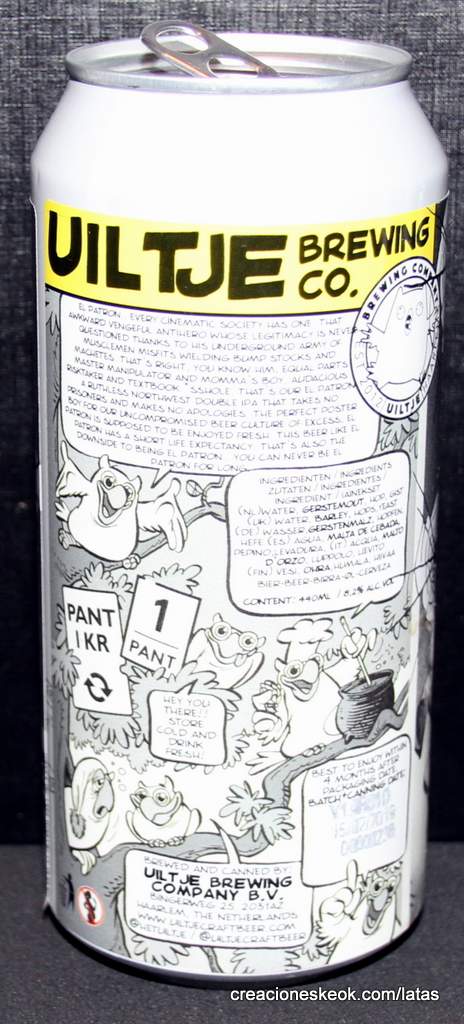 UILTJE BREWING CO.
BREWING COMPANY
UILTJE
2012
EL PATRON. EVERY CINEMATIC SOCIETY HAS ONE. THAT
AWKWARD VENGEFUL ANTIHERO WHOSE LEGITIMACY IS NEVER
QUESTIONED THANKS TO HIS UNDERGROUND ARMY OF
MUSCLEMEN MISFITS WIELDING BUMP STOCKS AND
MACHETES. THAT'S RIGHT. YOU KNOW HIM. EQUAL PARTS
MASTER MANIPULATOR AND MOMMA'S BOY. AUDACIOUS
RISKTAKER AND TEXTBOOK *SSHOLE. THAT IS OUR EL PATRON.
A RUTHLESS NORTHWEST DOUBLE IPA THAT TAKES NO
PRISONERS AND MAKES NO APOLOGIES. THE PERFECT POSTER
BOY FOR OUR UNCOMPROMISED BEER CULTURE OF EXCESS. EL
PATRON IS SUPPOSED TO BE ENJOYED FRESH. THIS BEER LIKE EL
PATRON HAS A SHORT LIFE EXPECTANCY. THAT'S ALSO THE
DOWNSIDE TO BEING EL PATRON. YOU CAN NEVER BE EL
PATRON FOR LONG.
INGREDIËNTEN / INGREDIENTS
ZUTATEN / INGREDIENTES
INGREDIENTI / AINEKSET
(NL) WATER, GERSTEMOUT, HOP, GIST
(UK) WATER, BARLEY, HOPS, YEAST
(DE) WASSER, GERSTENMALZ, HOPFEN,
HEFE (ES) AGUA, MALTA DE CEBADA,
LEVADURA, (IT) ACQUA, MALTO
D'ORZO, LUPPOLO, LIEVITO
(FIN) VESI, OHRA, HUMALA, HIIVAA
BIER-BEER-BIRRA-ØL-CERVEZA
CONTENT: 440ML / 8,2% ALC VOL
PANT
1 KR
1
PANT
HEY YOU
THERE!!
STORE
COLD AND
DRINK
FRESH!
BEST TO ENJOY WITHIN
4 MONTHS AFTER
PACKAGING DATE
BATCH + CANNING DATE:
BREWED AND CANNED BY:
UILTJE BREWING
COMPANY B.V.
BINGERWEG 25, 2031AZ
HAARLEM, THE NETHERLANDS
WWW.UILTJECRAFTBEER.COM
@HETUILTJE / @UILTJECRAFTBEER
creacioneskeok.com/latas